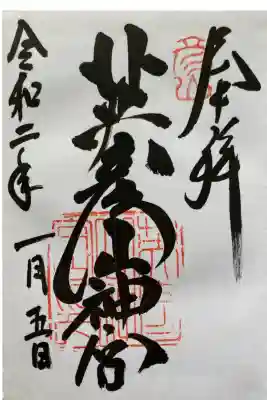 奉拝
英彦山神宮
令和二年一月五日